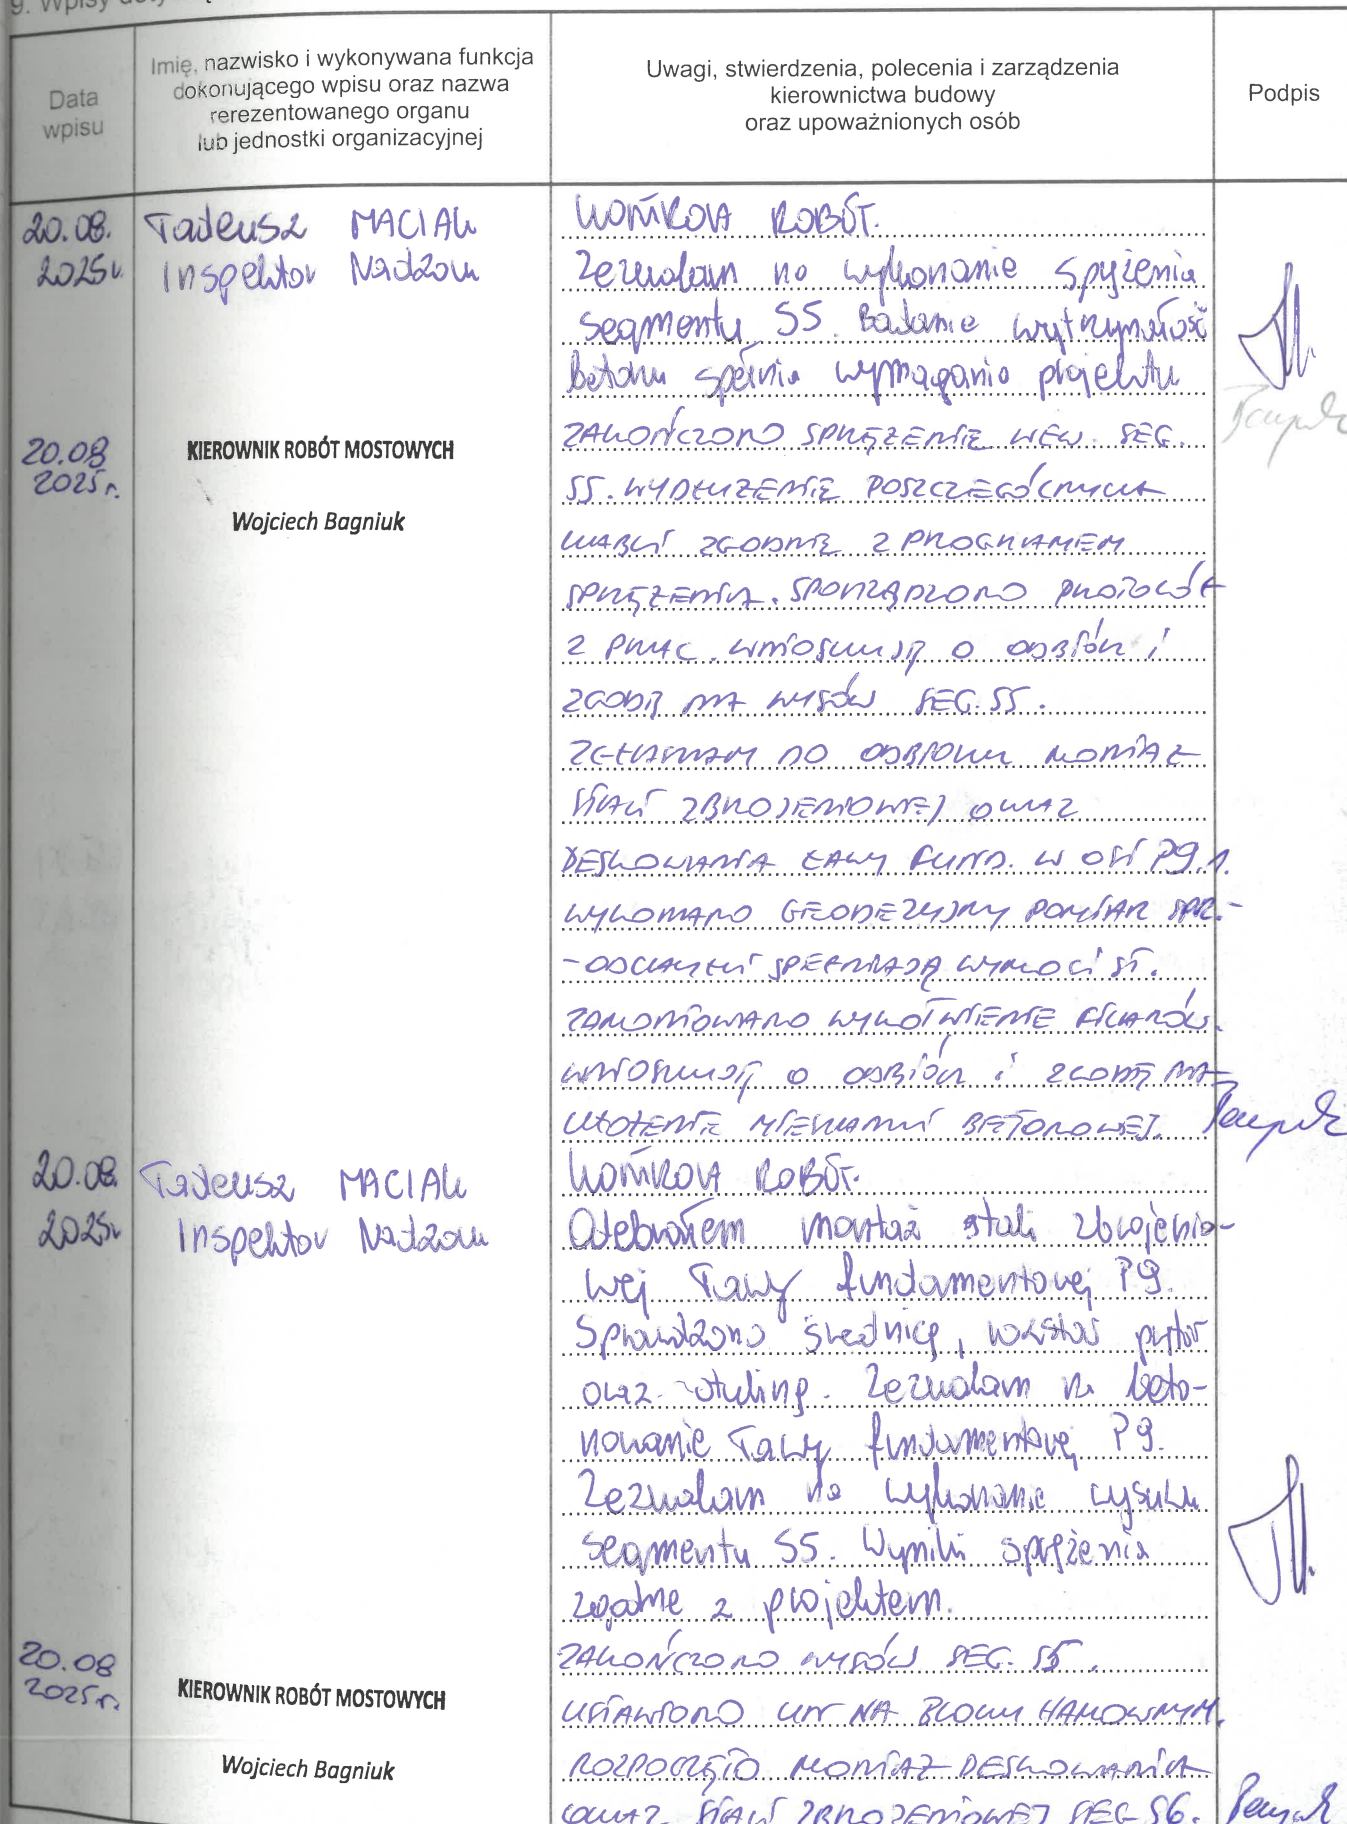 9. Wpisy
Data
wpisu
Imię, nazwisko i wykonywana funkcja
dokonującego wpisu oraz nazwa
rerezentowanego organu
lub jednostki organizacyjnej
Uwagi, stwierdzenia, polecenia i zarządzenia
kierownictwa budowy
oraz upoważnionych osób
Podpis
20.08.
2025r.
Tadeusz MACIAK
Inspektor Nadzoru
KONTROLA ROBÓT.
Zezwalam na wykonanie sprężenia
segmentu S5. Badanie wytrzymałość
betonu spełnia wymagania projektu
20.08
2025r.
KIEROWNIK ROBÓT MOSTOWYCH
Wojciech Bagniuk
ZAKOŃCZONO SPRĘŻENIE WEW. SEG.
S5. WYDŁUŻENIE POSZCZEGÓLNYCH
KABLI ZGODNIE Z PROGRAMEM
SPRĘŻENIA. SPORZĄDZONO PROTOKÓŁ
Z PRAC. WNIOSKUJĘ O ODBIÓR I
ZGODĘ NA WYSÓW SEG. S5.
ZGŁASZAM DO ODBIORU MONTAŻ
STALI ZBROJENIOWEJ ORAZ
DESKOWANIA ŁAWY FUND. W OSI P9.1.
WYKONANO GEODEZYJNY POMIAR SPR.-
- ODCHYŁKI SPEŁNIAJĄ WYMOGI ST.
ZAMONTOWANO WYKOTWIENIE FILARÓW.
WNIOSKUJĘ O ODBIÓR I ZGODĘ NA
UŁOŻENIE MIESZANKI BETONOWEJ.
20.08.
2025r
Tadeusz MACIAK
Inspektor Nadzoru
KONTROLA ROBÓT.
Odebrałem montaż stali zbrojenio-
wej ławy fundamentowej P9.
Sprawdzono średnicę, rozstaw prętów
oraz otulinę. Zezwalam na beto-
nowanie ławy fundamentowej P9.
Zezwalam na wykonanie wysuwu
segmentu S5. Wyniki sprężenia
zgodne z projektem.
20.08
2025r.
KIEROWNIK ROBÓT MOSTOWYCH
Wojciech Bagniuk
ZAKOŃCZONO WYSÓW SEG. S5.
USTAWIONO NA BLOKU HAMOWNYM.
ROZPOCZĘTO MONTAŻ DESKOWANIA
ORAZ STALI ZBROJENIOWEJ SEG S6.